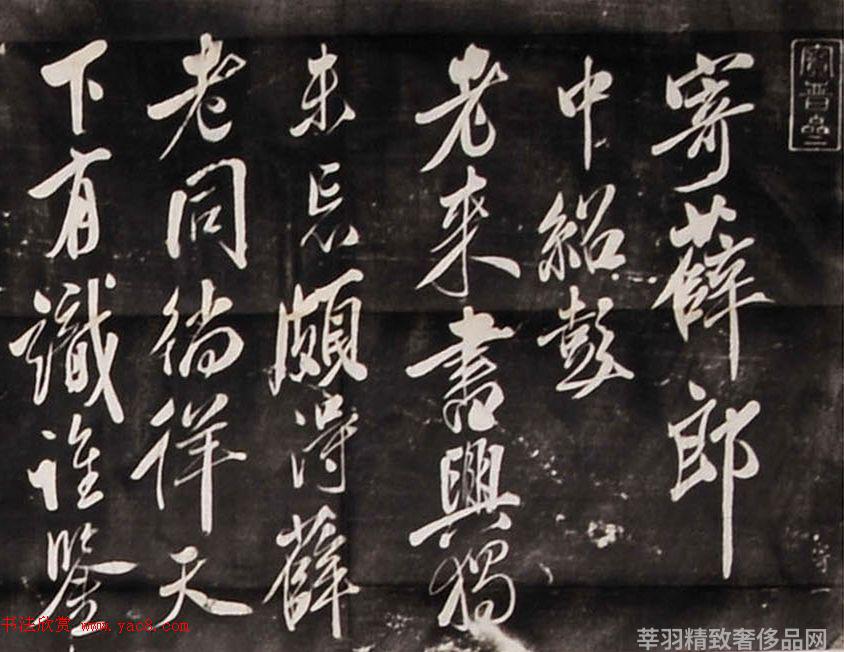 寄薛郎
中紹彭
老来書興獨
未忘頗得薛
老同徜徉天
下有識誰鑒
书法欣赏 www.yac8.com
莘羽精致奢侈品网